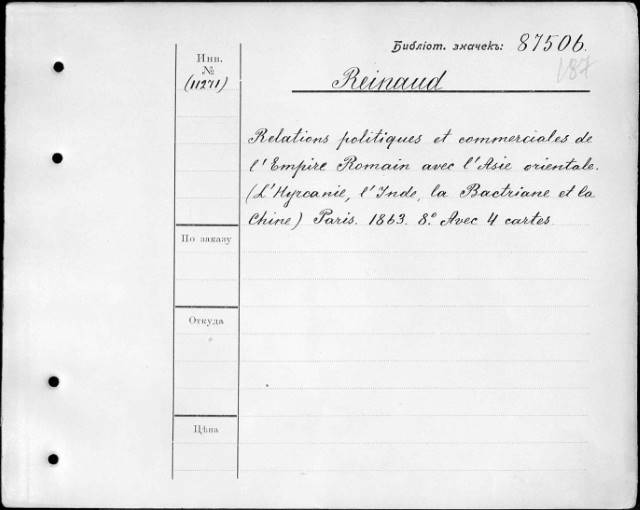 Библіот. значекъ: 87506.
187
Инв.
№
(11271)
Reinaud
Relations politiques et commerciales de
l'Empire Romain avec l'Asie orientale.
(L'Hyrcanie, l'Inde, la Bactriane et la
Chine) Paris. 1863. 8.° Avec 4 cartes
По заказу
Откуда
Цѣна